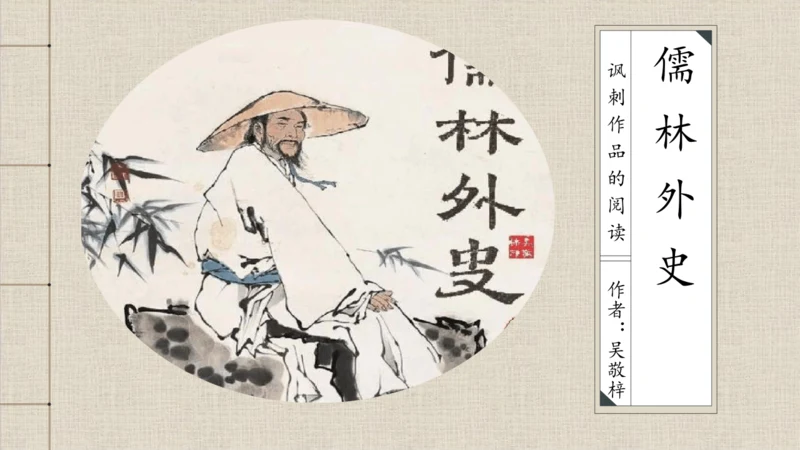 儒林外史
讽刺作品的阅读
作者：吴敬梓
儒林外史